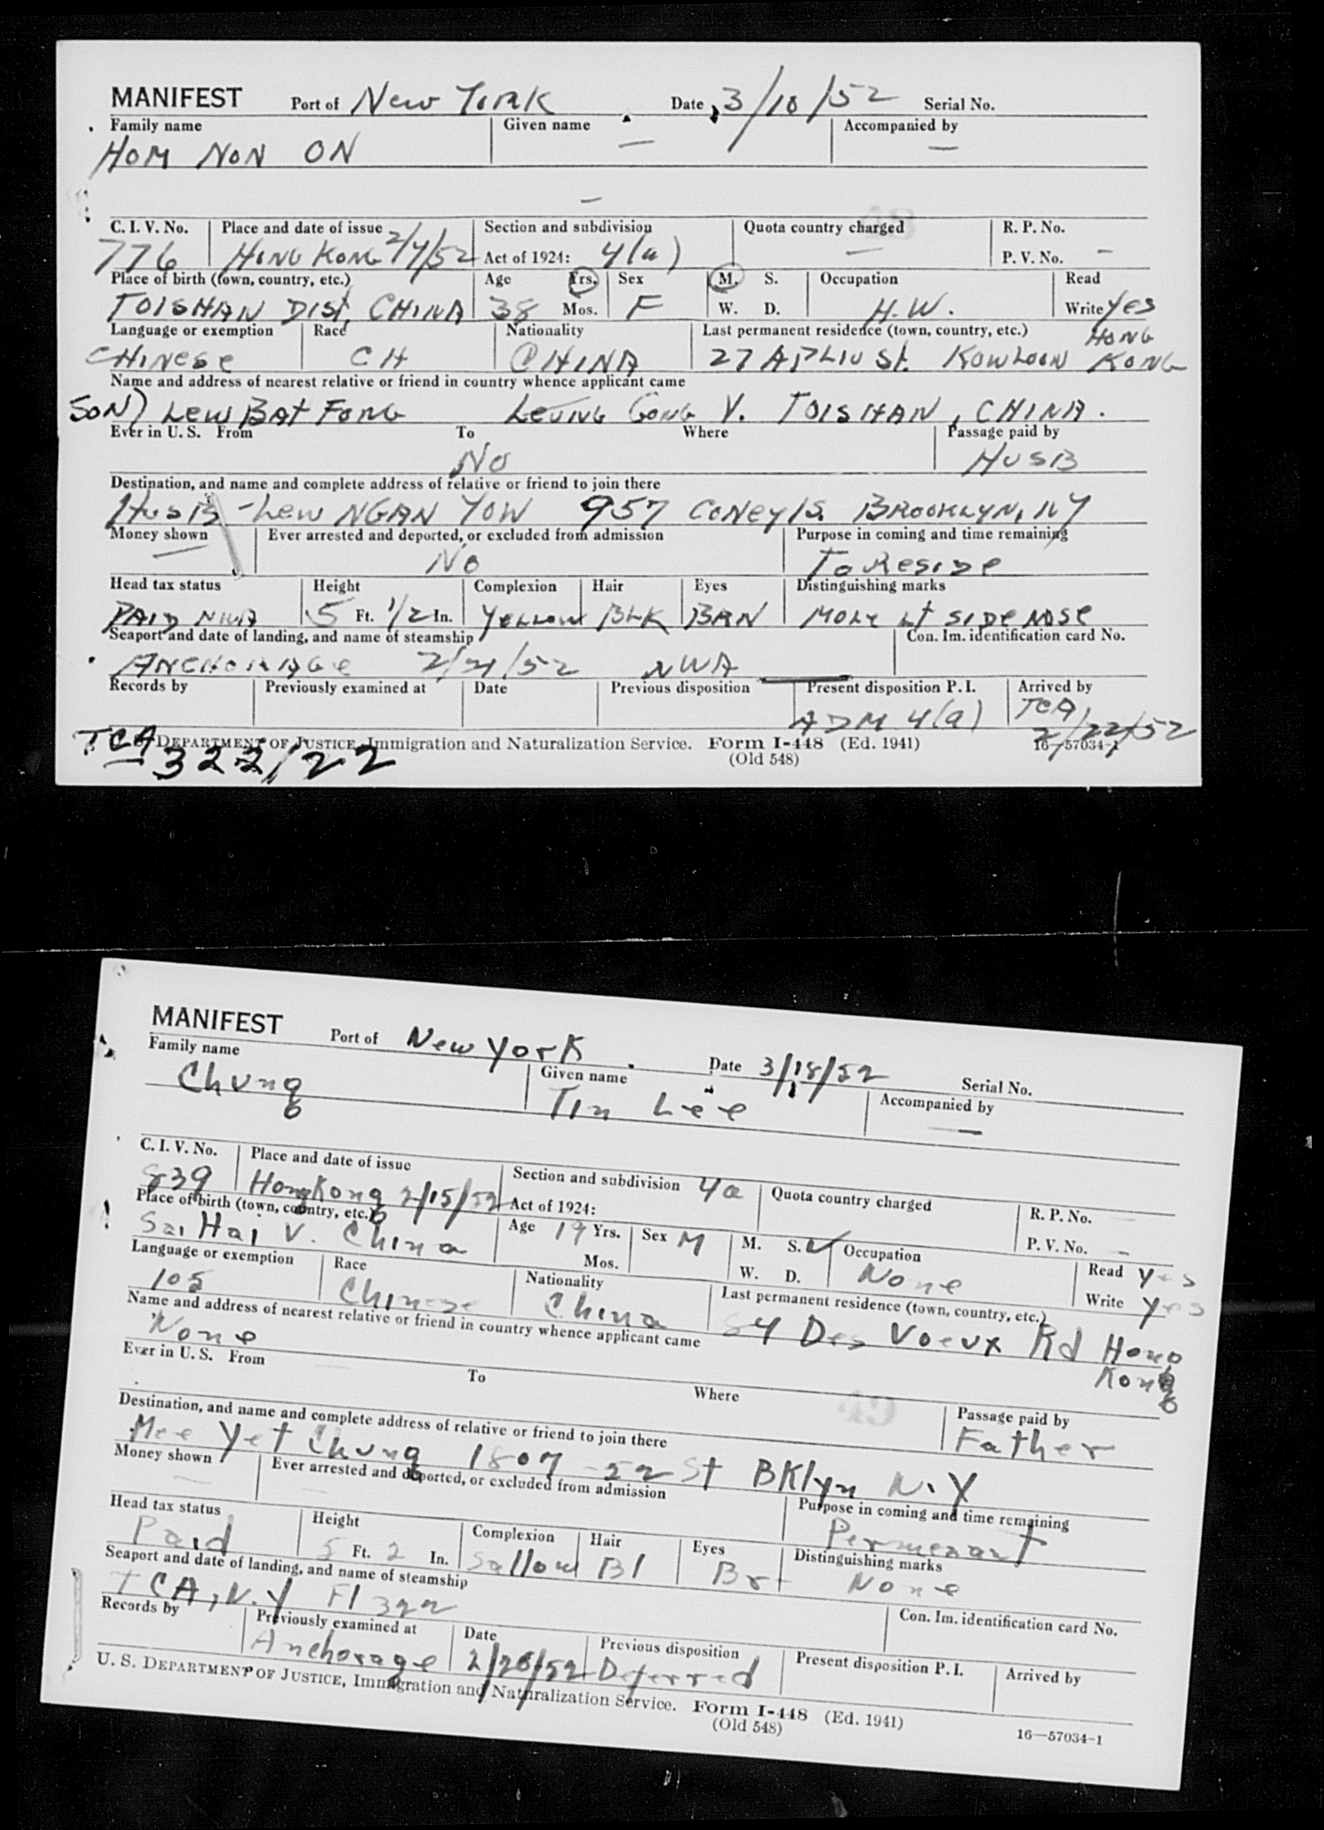 MANIFEST Port of New York Date 3/10/52 Serial No.
Family name Given name Accompanied by
HOM NON ON — —
—
C. I. V. No. Place and date of issue Section and subdivision Quota country charged R. P. No.
776 HONG KONG 2/7/52 Act of 1924: 4(a) — P. V. No. —
Place of birth (town, country, etc.) Age Yrs. Sex M. S. Occupation Read
TOISHAN DIST, CHINA 38 Mos. F W. D. H.W. Write Yes
Language or exemption Race Nationality Last permanent residence (town, country, etc.) HONG
CHINESE CH CHINA 27 APLIU St. KOWLOON KONG
Name and address of nearest relative or friend in country whence applicant came
SON) LEW BAT FONG LEUNG GONG V. TOISHAN, CHINA.
Ever in U. S. From To Where Passage paid by
NO HUSB
Destination, and name and complete address of relative or friend to join there
HUSB - Lew NGAN YOW 957 CONEY IS. BROOKLYN, NY
Money shown Ever arrested and deported, or excluded from admission Purpose in coming and time remaining
— No To Reside
Head tax status Height Complexion Hair Eyes Distinguishing marks
PAID NWA 5 Ft. 1/2 In. YELLOW BLK BRN MOLE Lt SIDE NOSE
Seaport and date of landing, and name of steamship Con. Im. identification card No.
ANCHORAGE 2/21/52 NWA
Records by Previously examined at Date Previous disposition Present disposition P. I. Arrived by
ADM 4(a) TCA
2/22/52
TCA DEPARTMENT OF JUSTICE, Immigration and Naturalization Service. Form I-448 (Ed. 1941) 16—57034-1
322/22 (Old 548)
MANIFEST Port of New York Date 3/18/52 Serial No.
Family name Given name Accompanied by
Chung Tin Lee —
C. I. V. No. Place and date of issue Section and subdivision 4a Quota country charged R. P. No.
839 HongKong 2/15/52 Act of 1924: P. V. No. —
Place of birth (town, country, etc.) Age 19 Yrs. Sex M M. S. ✓ Occupation Read Yes
Sai Hai V. China Mos. W. D. None Write Yes
Language or exemption Race Nationality Last permanent residence (town, country, etc.)
105 Chinese China 54 Des Voeux Rd Hong
Kong
Name and address of nearest relative or friend in country whence applicant came
None
Ever in U. S. From To Where Passage paid by
Father
Destination, and name and complete address of relative or friend to join there
Mee Yet Chung 1807 - 52 St BKlyn N.Y
Money shown Ever arrested and deported, or excluded from admission Purpose in coming and time remaining
— Permenant
Head tax status Height Complexion Hair Eyes Distinguishing marks
Paid 5 Ft. 2 In. Sallow Bl Br None
Seaport and date of landing, and name of steamship Con. Im. identification card No.
TCA, N.Y Fl 322
Records by Previously examined at Date Previous disposition Present disposition P. I. Arrived by
Anchorage 2/20/52 Deferred
U. S. DEPARTMENT OF JUSTICE, Immigration and Naturalization Service. Form I-448 (Ed. 1941) 16—57034-1
(Old 548)